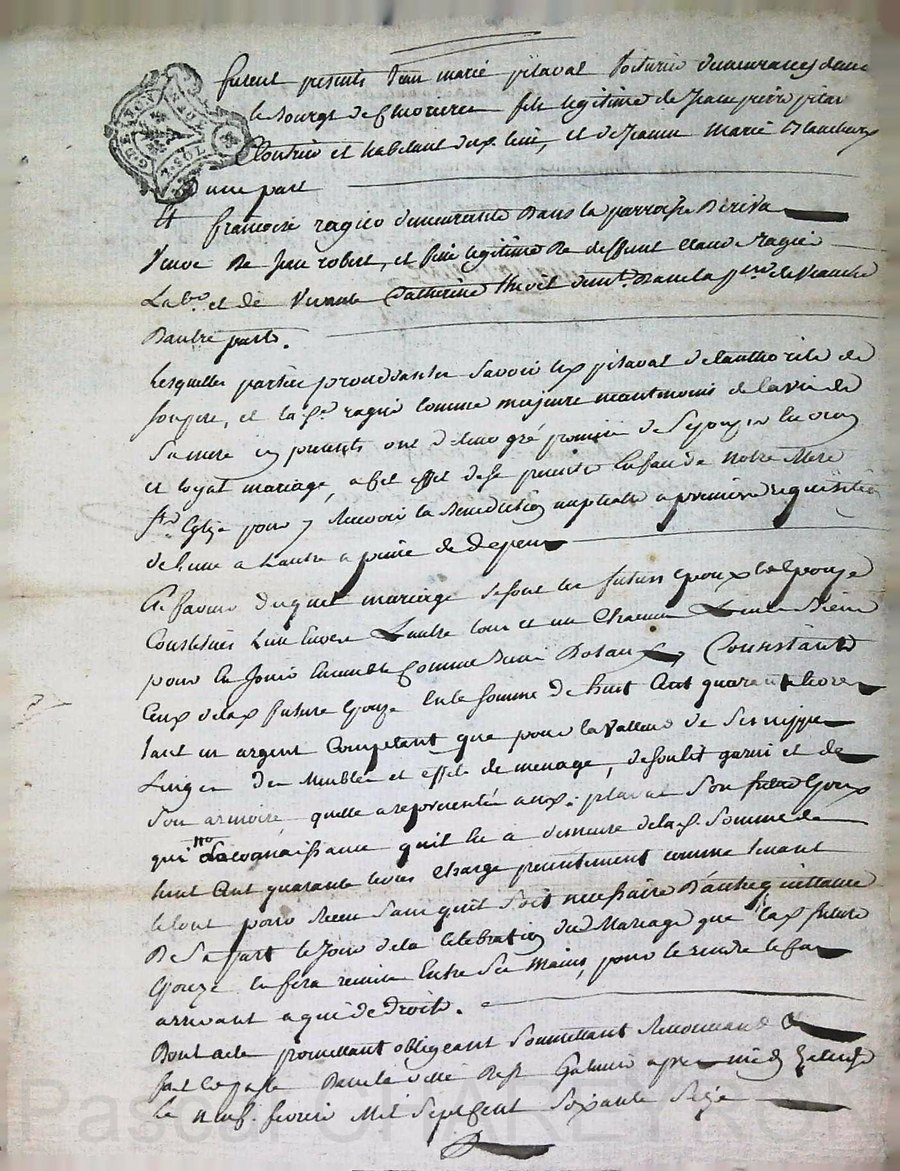 furent presents Jean marié pitaval Voiturier demeurant dans
le Bourg de fils legitime de Jean pierre pitaval
et habitant dud. lieu, et de Jeanne Marie
D'une part
Et francoise ragico demeurante Dans la parroisse De
Veuve De Jean robert, et fille legitime De deffunt Claude Ragié
Labr. et de Vivante Catherine demt. Dans la psse. de
D'autre part.
Lesquelles parties procedantes Savoir led. pitaval de l'authorité de
son pere, et la d. ragié Comme majeure neantmoins de l'avis de
sa mere cy presents ont de leur gré promis de S'epouzer En vray
et loyal mariage, a Cet effet de se presenter En face de Notre Mere
Ste. Eglize pour y Recevoir la Benediction nuptialle a premiere requisition
de L'une a L'autre a peine de depens
En faveur duquel mariage se sont les futurs Epoux et Epouze
Constitués L'un Envers L'autre tous et un Chacuns Leurs Biens
pour En Jouir Ensemble Comme Biens Dotaux, Consistants
Ceux de lad. future Epouze En la somme de huit Cent quarante livres
tant en argent Comptant que pour la Valleur de Ses nippes
Linges des Meubles et effets de menage, de son lit garni et de
Son armoire quelle a representés aud. pitaval Son futur Epoux
qui a reconnaissance quil les a de lad. Somme de
huit Cent quarante livres Charge presentement comme tenant
le tout pour Receu Sans quil Soit necessaire D'autre quittance
De Sa part le Jour de la Celebration du Mariage que lad. future
Epouze En fera remise Entre Ses Mains, pour le rendre le Cas
arrivant a qui de droit.
Dont acte promettant obligeant Soumettant Renonceant &
fait et passé Dans la ville De St. Galmier apres midy
le neuf fevrier Mil Sept Cent Soixante Seize
GDE LYON
1. SOL
Pascal CHAREYRON